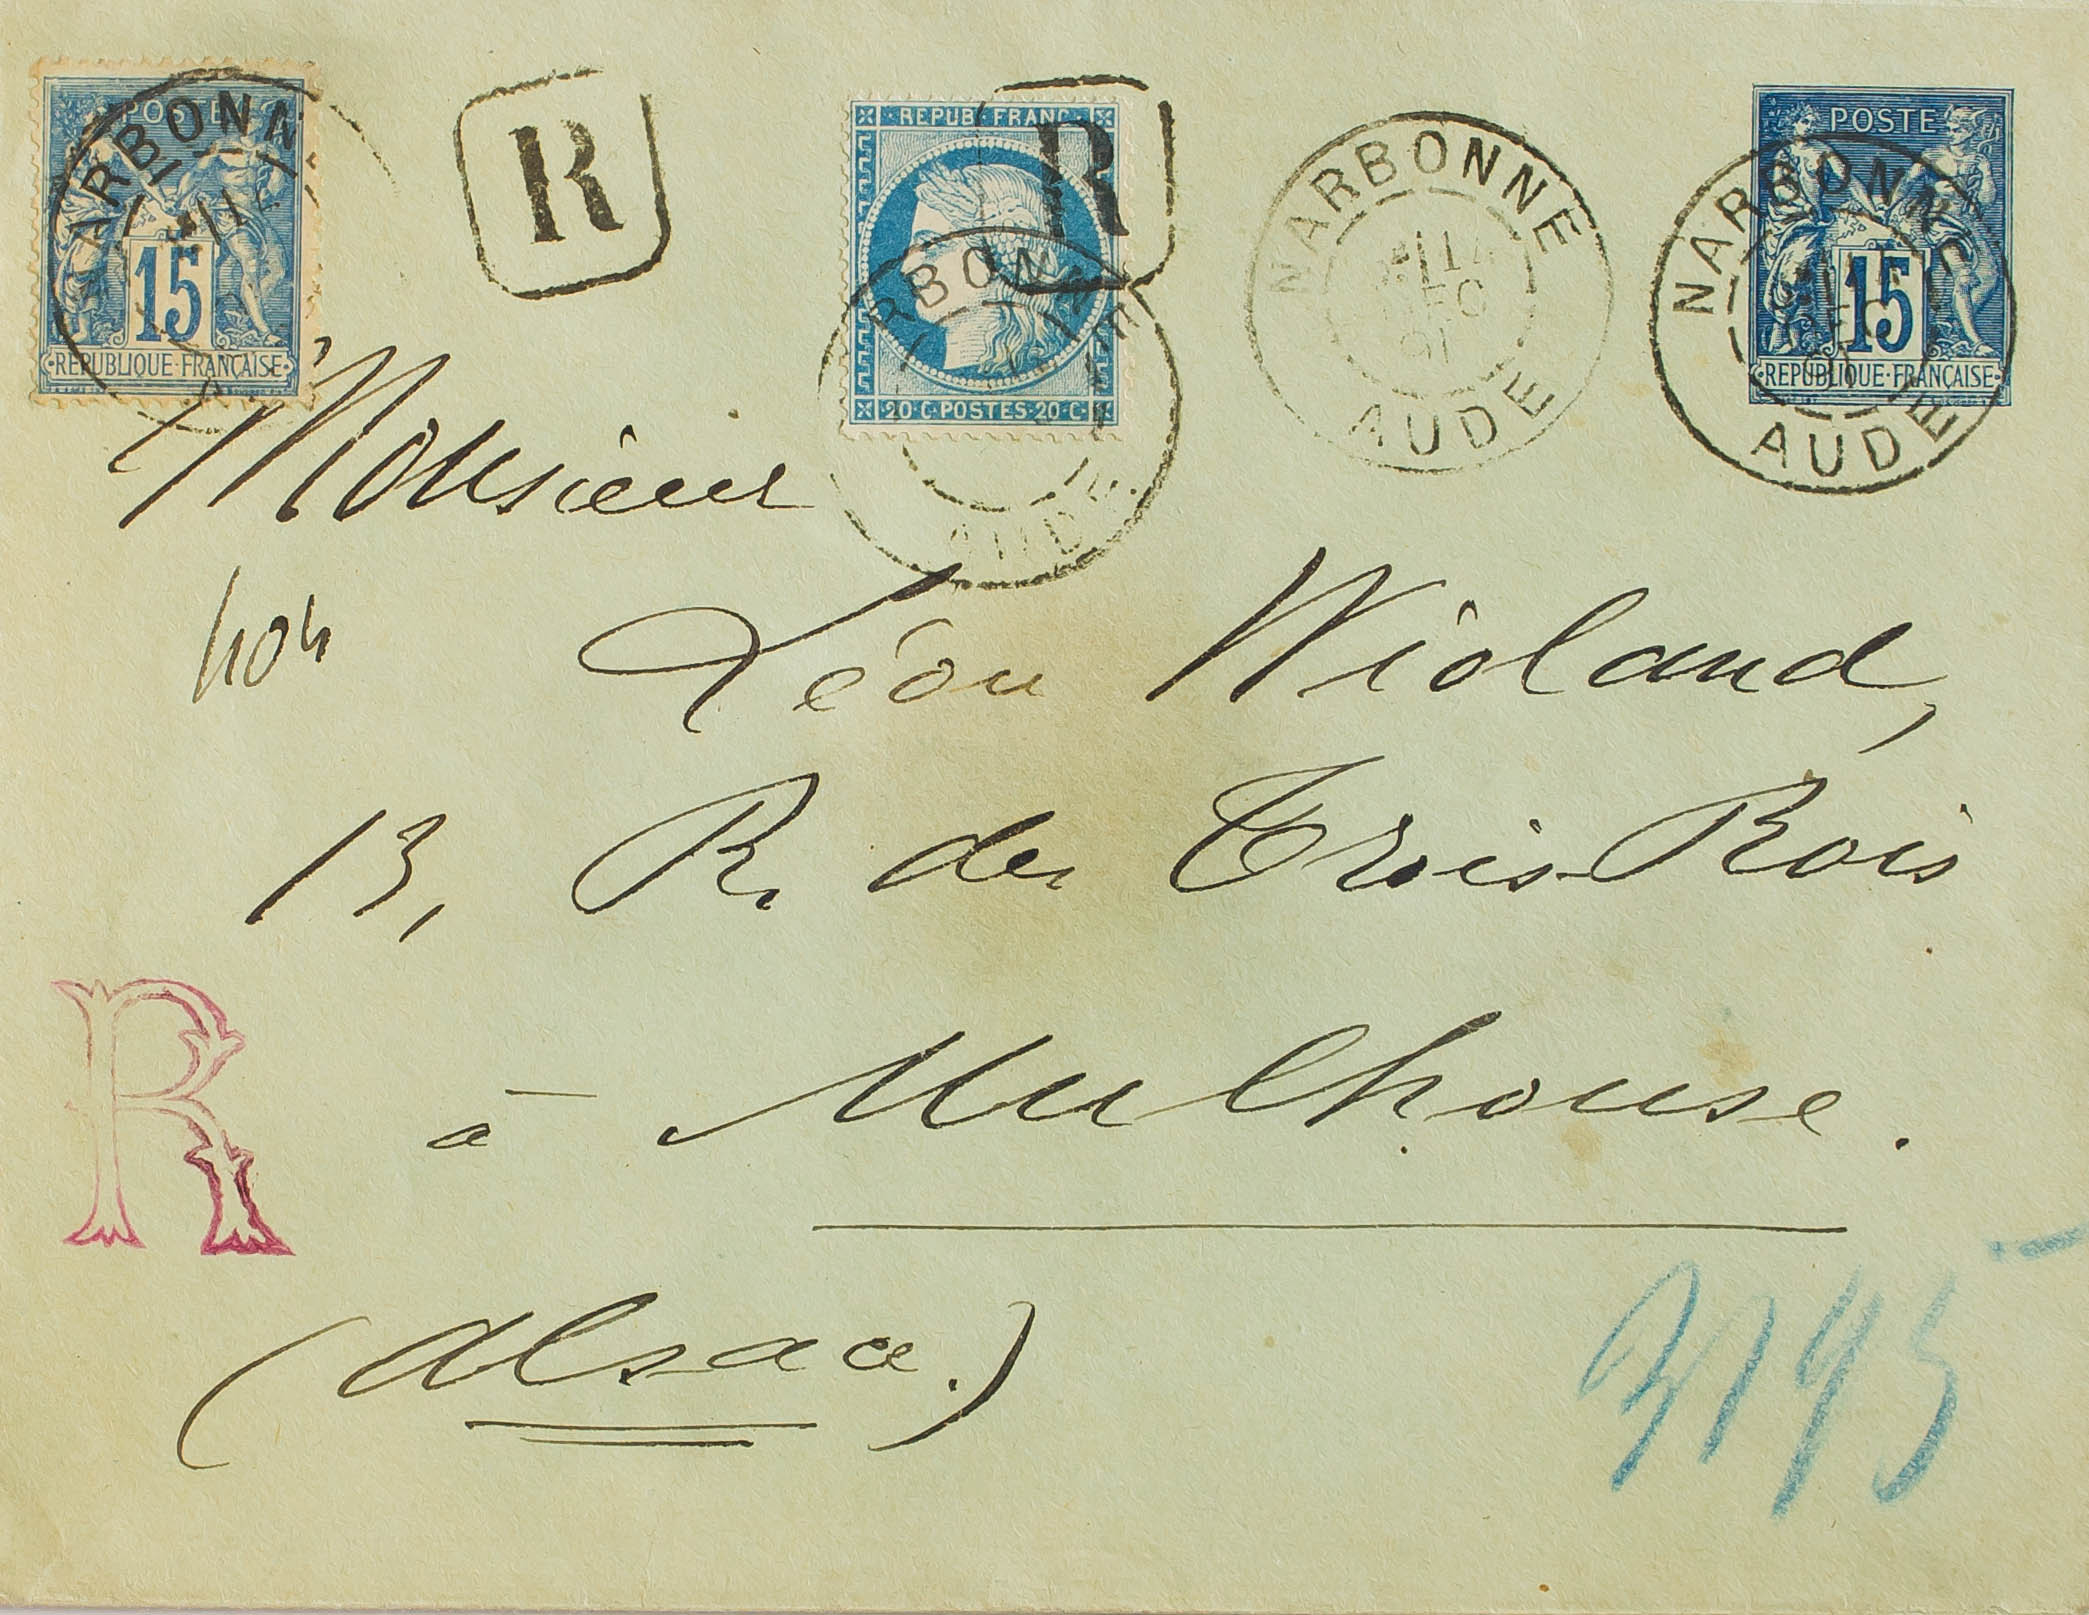 POSTE
15
REPUBLIQUE FRANÇAISE
NARBONN
R
REPUB FRANC
20 C POSTES 20 C
R
RBONNE
AUDE
NARBONNE
DEC
91
AUDE
POSTE
15
REPUBLIQUE FRANÇAISE
NARBONNE
AUDE
Monsieur
404
Léon Wioland,
13, R. des Trois Rois
R
à Mulhouse.
(Alsace.)
3195